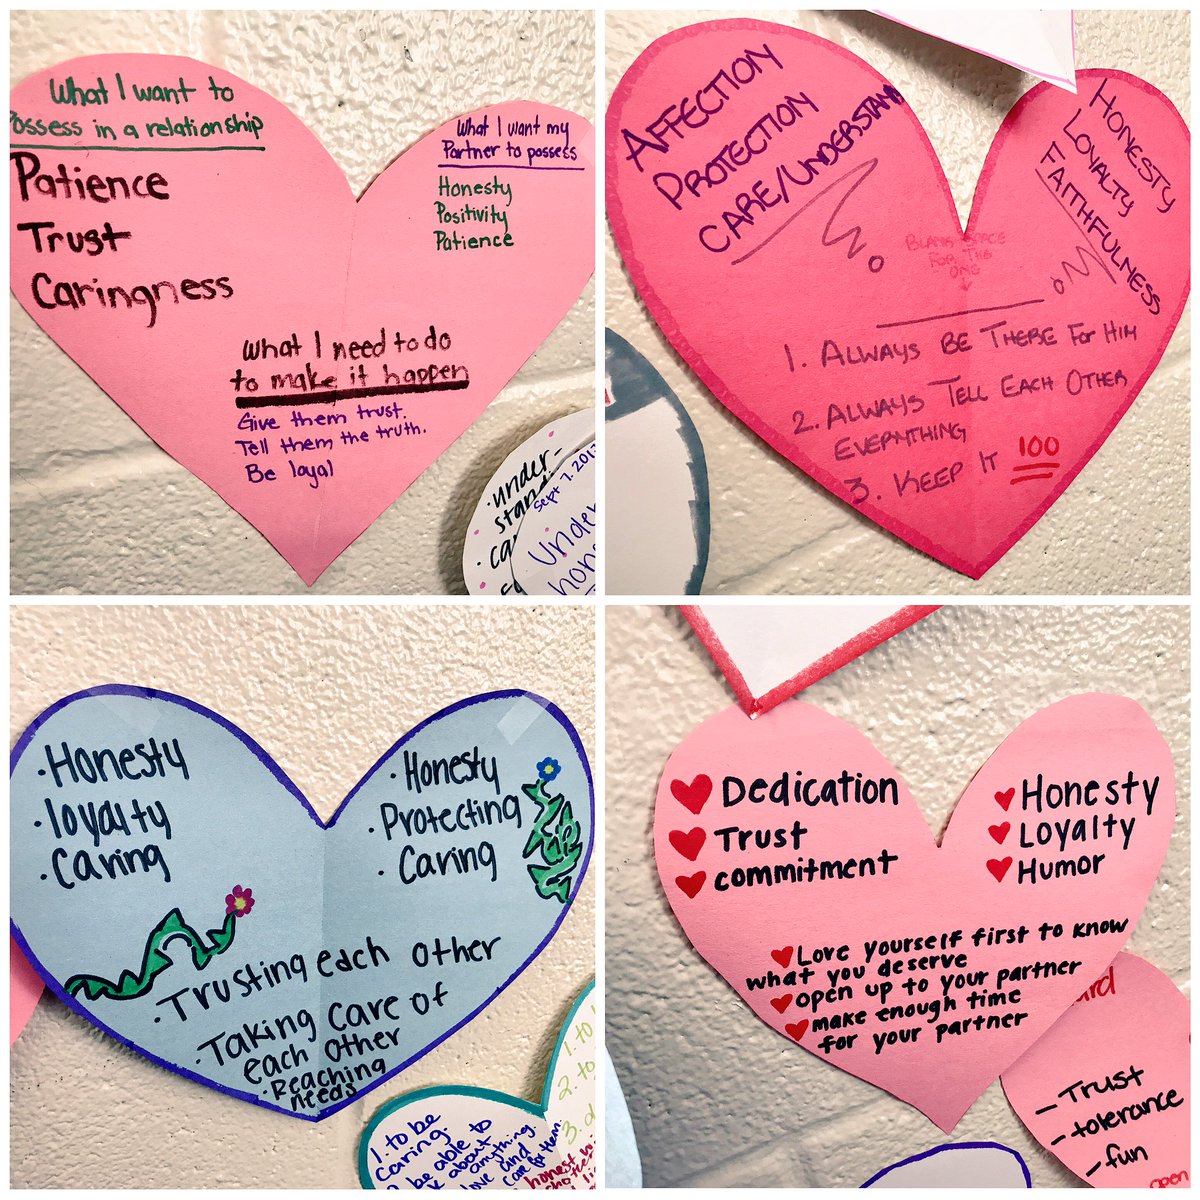 What I want to
Possess in a relationship
Patience
Trust
Caringness
What I want my
Partner to possess
Honesty
Positivity
Patience
What I need to do
to make it happen
Give them trust.
Tell them the truth.
Be loyal
·under-
stand
Sept 7, 2017
AFFECTION
PROTECTION
CARE/UNDERSTAND
HONESTY
LOYALTY
FAITHFULNESS
BLANK SPACE
FOR THE
ONE
1. ALWAYS BE THERE FOR HIM
2. ALWAYS TELL EACH OTHER
EVERYTHING
3. KEEP IT 100
·Honesty
·loyalty
·Caring
·Honesty
·Protecting
·Caring
·Trusting each other
·Taking care of
each other
·Reaching
needs
1. to be
caring.
be able to
about
anything
love and
care for them
1. to
2. to
3. d
honest
Dedication
Trust
commitment
Honesty
Loyalty
Humor
Love yourself first to know
what you deserve
open up to your partner
make enough time
for your partner
- Trust
- tolerance
- fun
open